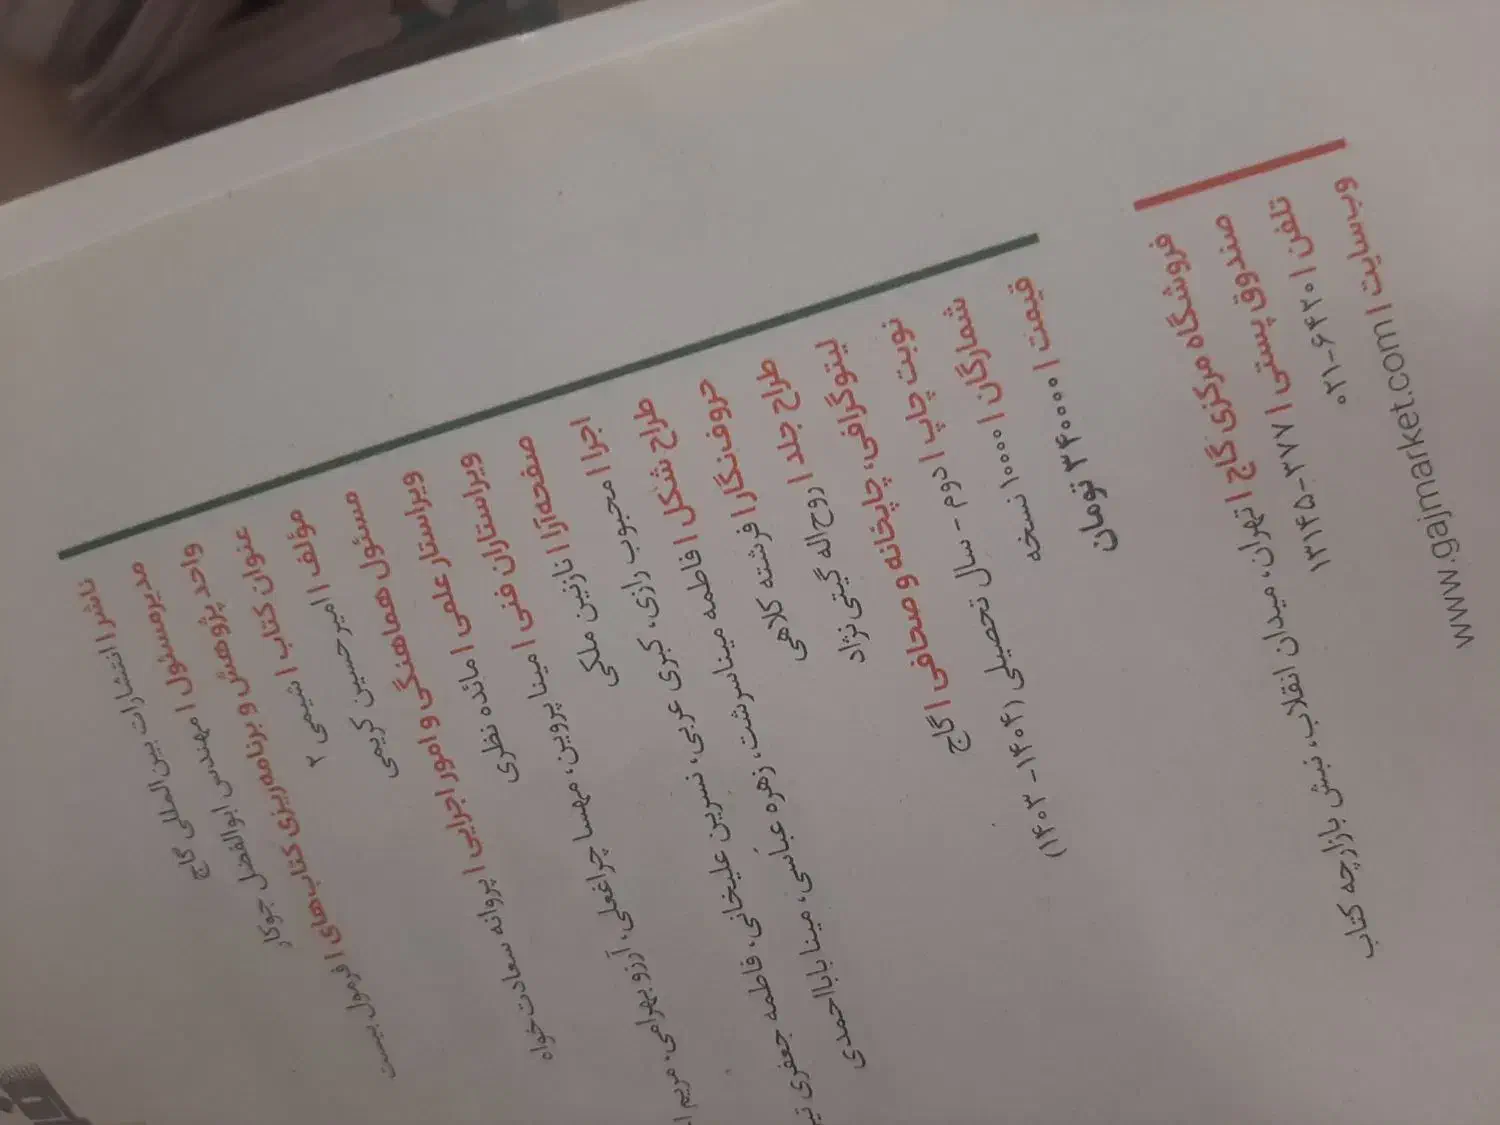 ناشر | انتشارات بین‌المللی گاج
مدیرمسئول | مهندس ابوالفضل جوکار
واحد پژوهش و برنامه‌ریزی کتاب‌های | فرمول بیست
عنوان کتاب | شیمی ۲
مؤلف | امیرحسین کریمی
مسئول هماهنگی و امور اجرایی | پروانه سعادت‌خواه
ویراستار علمی | مائده نظری
ویراستاران فنی | مینا پروین، مهسا چراغعلی، آرزو بهرامی، مریم
صفحه‌آرا | نازنین ملکی
اجرا | محبوب رازی، کبری عربی، نسرین علیخانی، فاطمه جعفری
طراح شکل | فاطمه میناسرشت، زهره عباسی، مینا بابااحمدی
حروف‌نگار | فرشته کلاهی
طراح جلد | روح‌اله گیتی‌نژاد
لیتوگرافی، چاپخانه و صحافی | گاج
نوبت چاپ | دوم - سال تحصیلی (۱۴۰۴ - ۱۴۰۳)
شمارگان | ۱۰۰۰۰ نسخه
قیمت | ۳۴۰۰۰۰ تومان
فروشگاه مرکزی گاج | تهران، میدان انقلاب، نبش بازارچه کتاب
صندوق پستی | ۳۷۷-۱۳۱۴۵
تلفن | ۶۴۲۰-۰۲۱
وب‌سایت | www.gajmarket.com